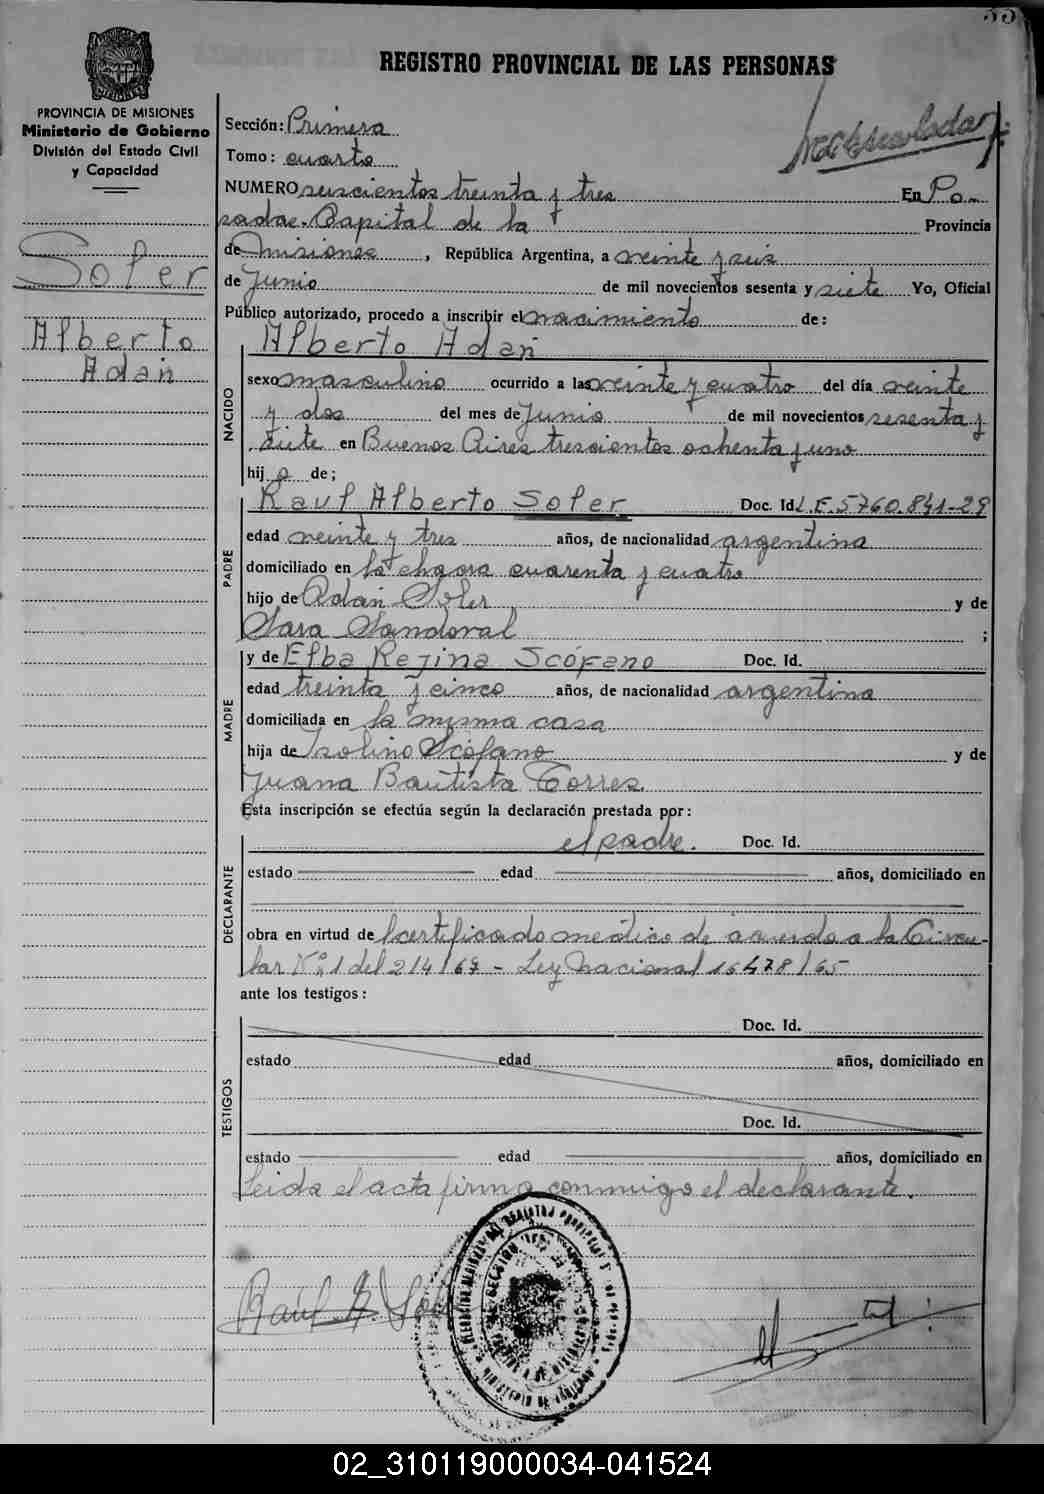 REGISTRO PROVINCIAL DE LAS PERSONAS
PROVINCIA DE MISIONES
Ministerio de Gobierno
División del Estado Civil
y Capacidad
Soler
Alberto
Adan
Sección: Primera
Tomo: cuarto
NUMERO seiscientos treinta y tres En Po-
sadas. Capital de la Provincia
de Misiones, República Argentina, a veinte y seis
de Junio de mil novecientos sesenta y siete Yo, Oficial
Público autorizado, procedo a inscribir el nacimiento de:
NACIDO
Alberto Adan
sexo masculino ocurrido a las veinte y cuatro del día veinte
y dos del mes de Junio de mil novecientos sesenta y
siete en Buenos Aires trescientos ochenta y uno
hijo de;
PADRE
Raul Alberto Soler Doc. Id. L.E. 5760.841-29
edad veinte y tres años, de nacionalidad argentina
domiciliado en la chacra cuarenta y cuatro
hijo de Adan Soler y de
Sara Sandoval ;
MADRE
y de Elba Regina Scófano Doc. Id.
edad treinta y cinco años, de nacionalidad argentina
domiciliada en la misma casa
hija de Isolino Scófano y de
Juana Bautista Torres.
Esta inscripción se efectúa según la declaración prestada por:
DECLARANTE
el padre. Doc. Id.
estado edad años, domiciliado en
obra en virtud del certificado médico de acuerdo a la Circu-
lar Nº 1 del 2/4/67 - Ley Nacional 16478/65
ante los testigos:
TESTIGOS
Doc. Id.
estado edad años, domiciliado en
Doc. Id.
estado edad años, domiciliado en
Leida el acta firma conmigo el declarante.
Raúl A. Soler
02_310119000034-041524